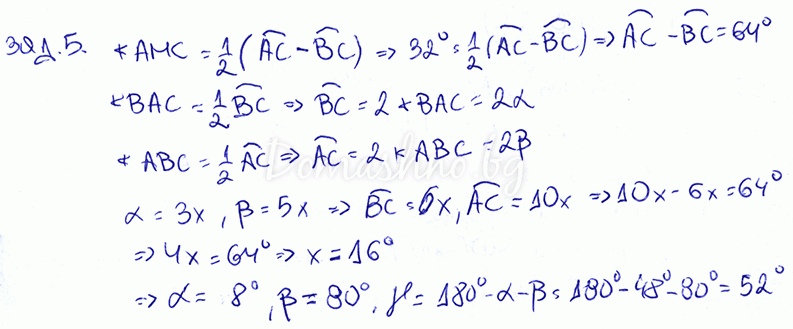 Зад.5. ∢AMC = 1/2(A͡C − B͡C) => 32° = 1/2(A͡C − B͡C) => A͡C − B͡C = 64°
∢BAC = 1/2 B͡C => B͡C = 2∢BAC = 2α
∢ABC = 1/2 A͡C => A͡C = 2∢ABC = 2β
Domashno.bg
α = 3x, β = 5x => B͡C = 6x, A͡C = 10x => 10x − 6x = 64°
=> 4x = 64° => x = 16°
=> α = 8°, β = 80°, γ = 180° − α − β = 180° − 48° − 80° = 52°